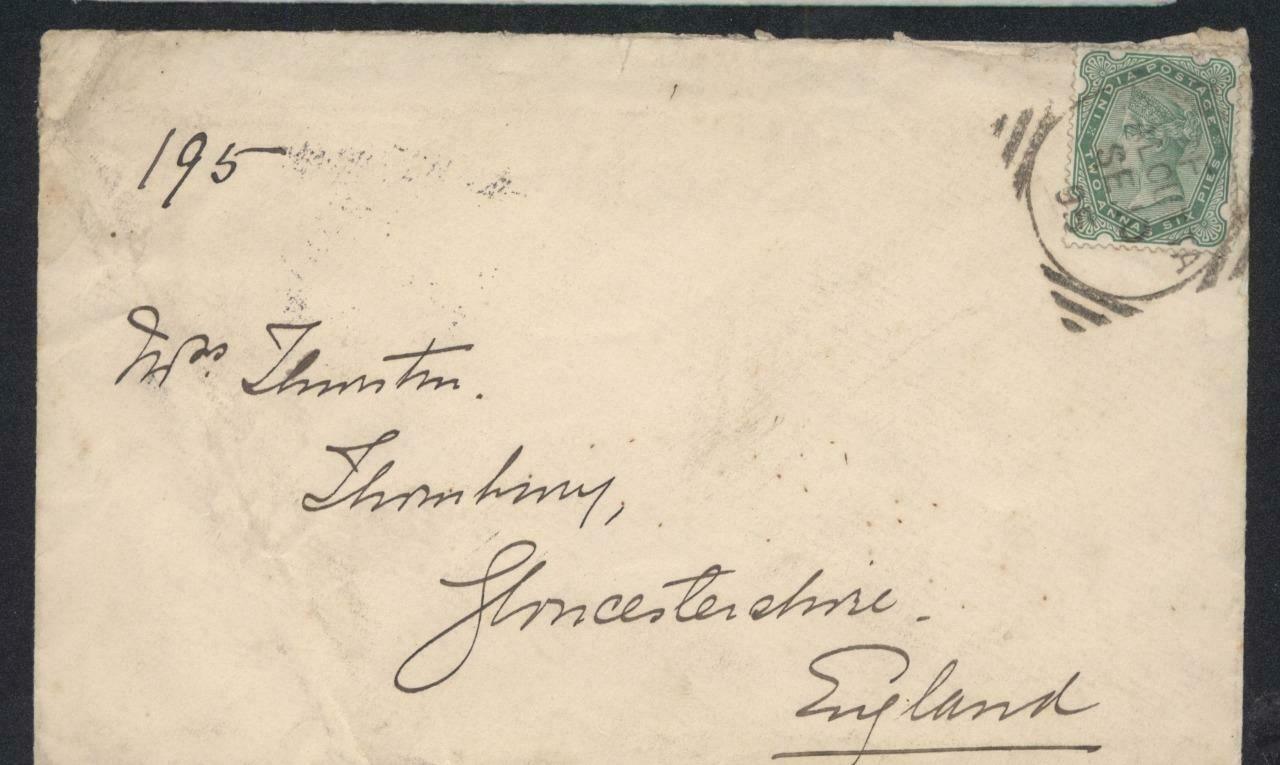 INDIA POSTAGE
TWO ANNAS SIX PIES
SE
195
Mrs Thurston.
Thornbury,
Gloucestershire.
England